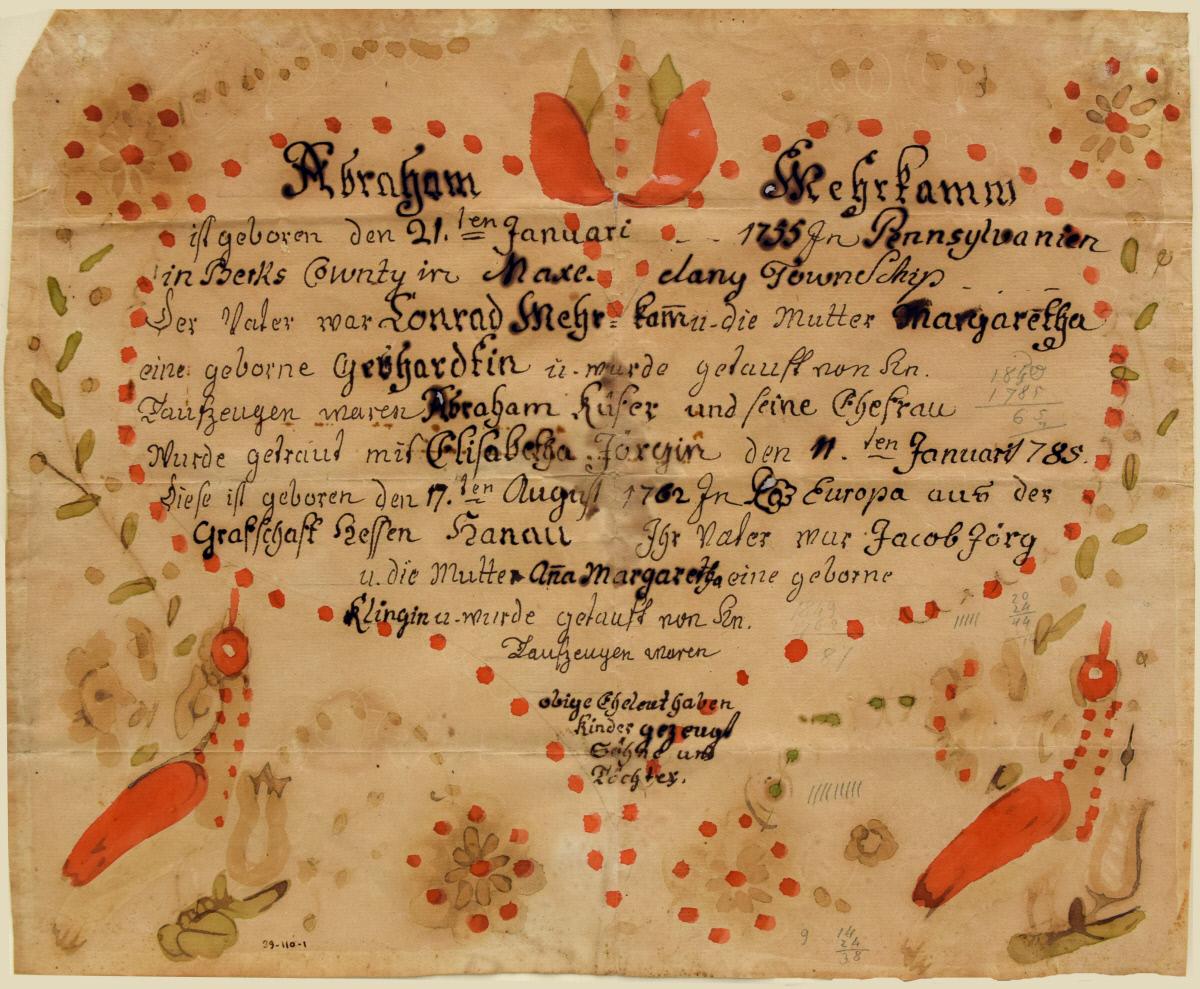 Abraham Mehrkamm
ist geboren den 21.ten Januari - - 1755 In Pennsylvanien
in Berks County in Maxe. elany TowneSchip - . - .
Der Vater war Conrad Mehr= kam̅ u. die Mutter Margaretha
eine geborne Gebhardtin u. wurde getauft von Hn.
Taufzeugen waren Abraham Küfer und seine Ehefrau
Wurde getraut mit Elisabetha Jörgin den 11.ten Januari 1785.
Diese ist geboren den 17.ten August 1762 In Europa aus der
Grafschaft Hessen Hanau Ihr Vater war Jacob Jörg
u. die Mutter An̅a Margaretha eine geborne
Klingin u. wurde getauft von Hn.
Taufzeugen waren
obige Eheleut haben
Kinder gezeugt
Söhne und
Töchter.
1785
20
24
44
9
14
24
38
39-110-1